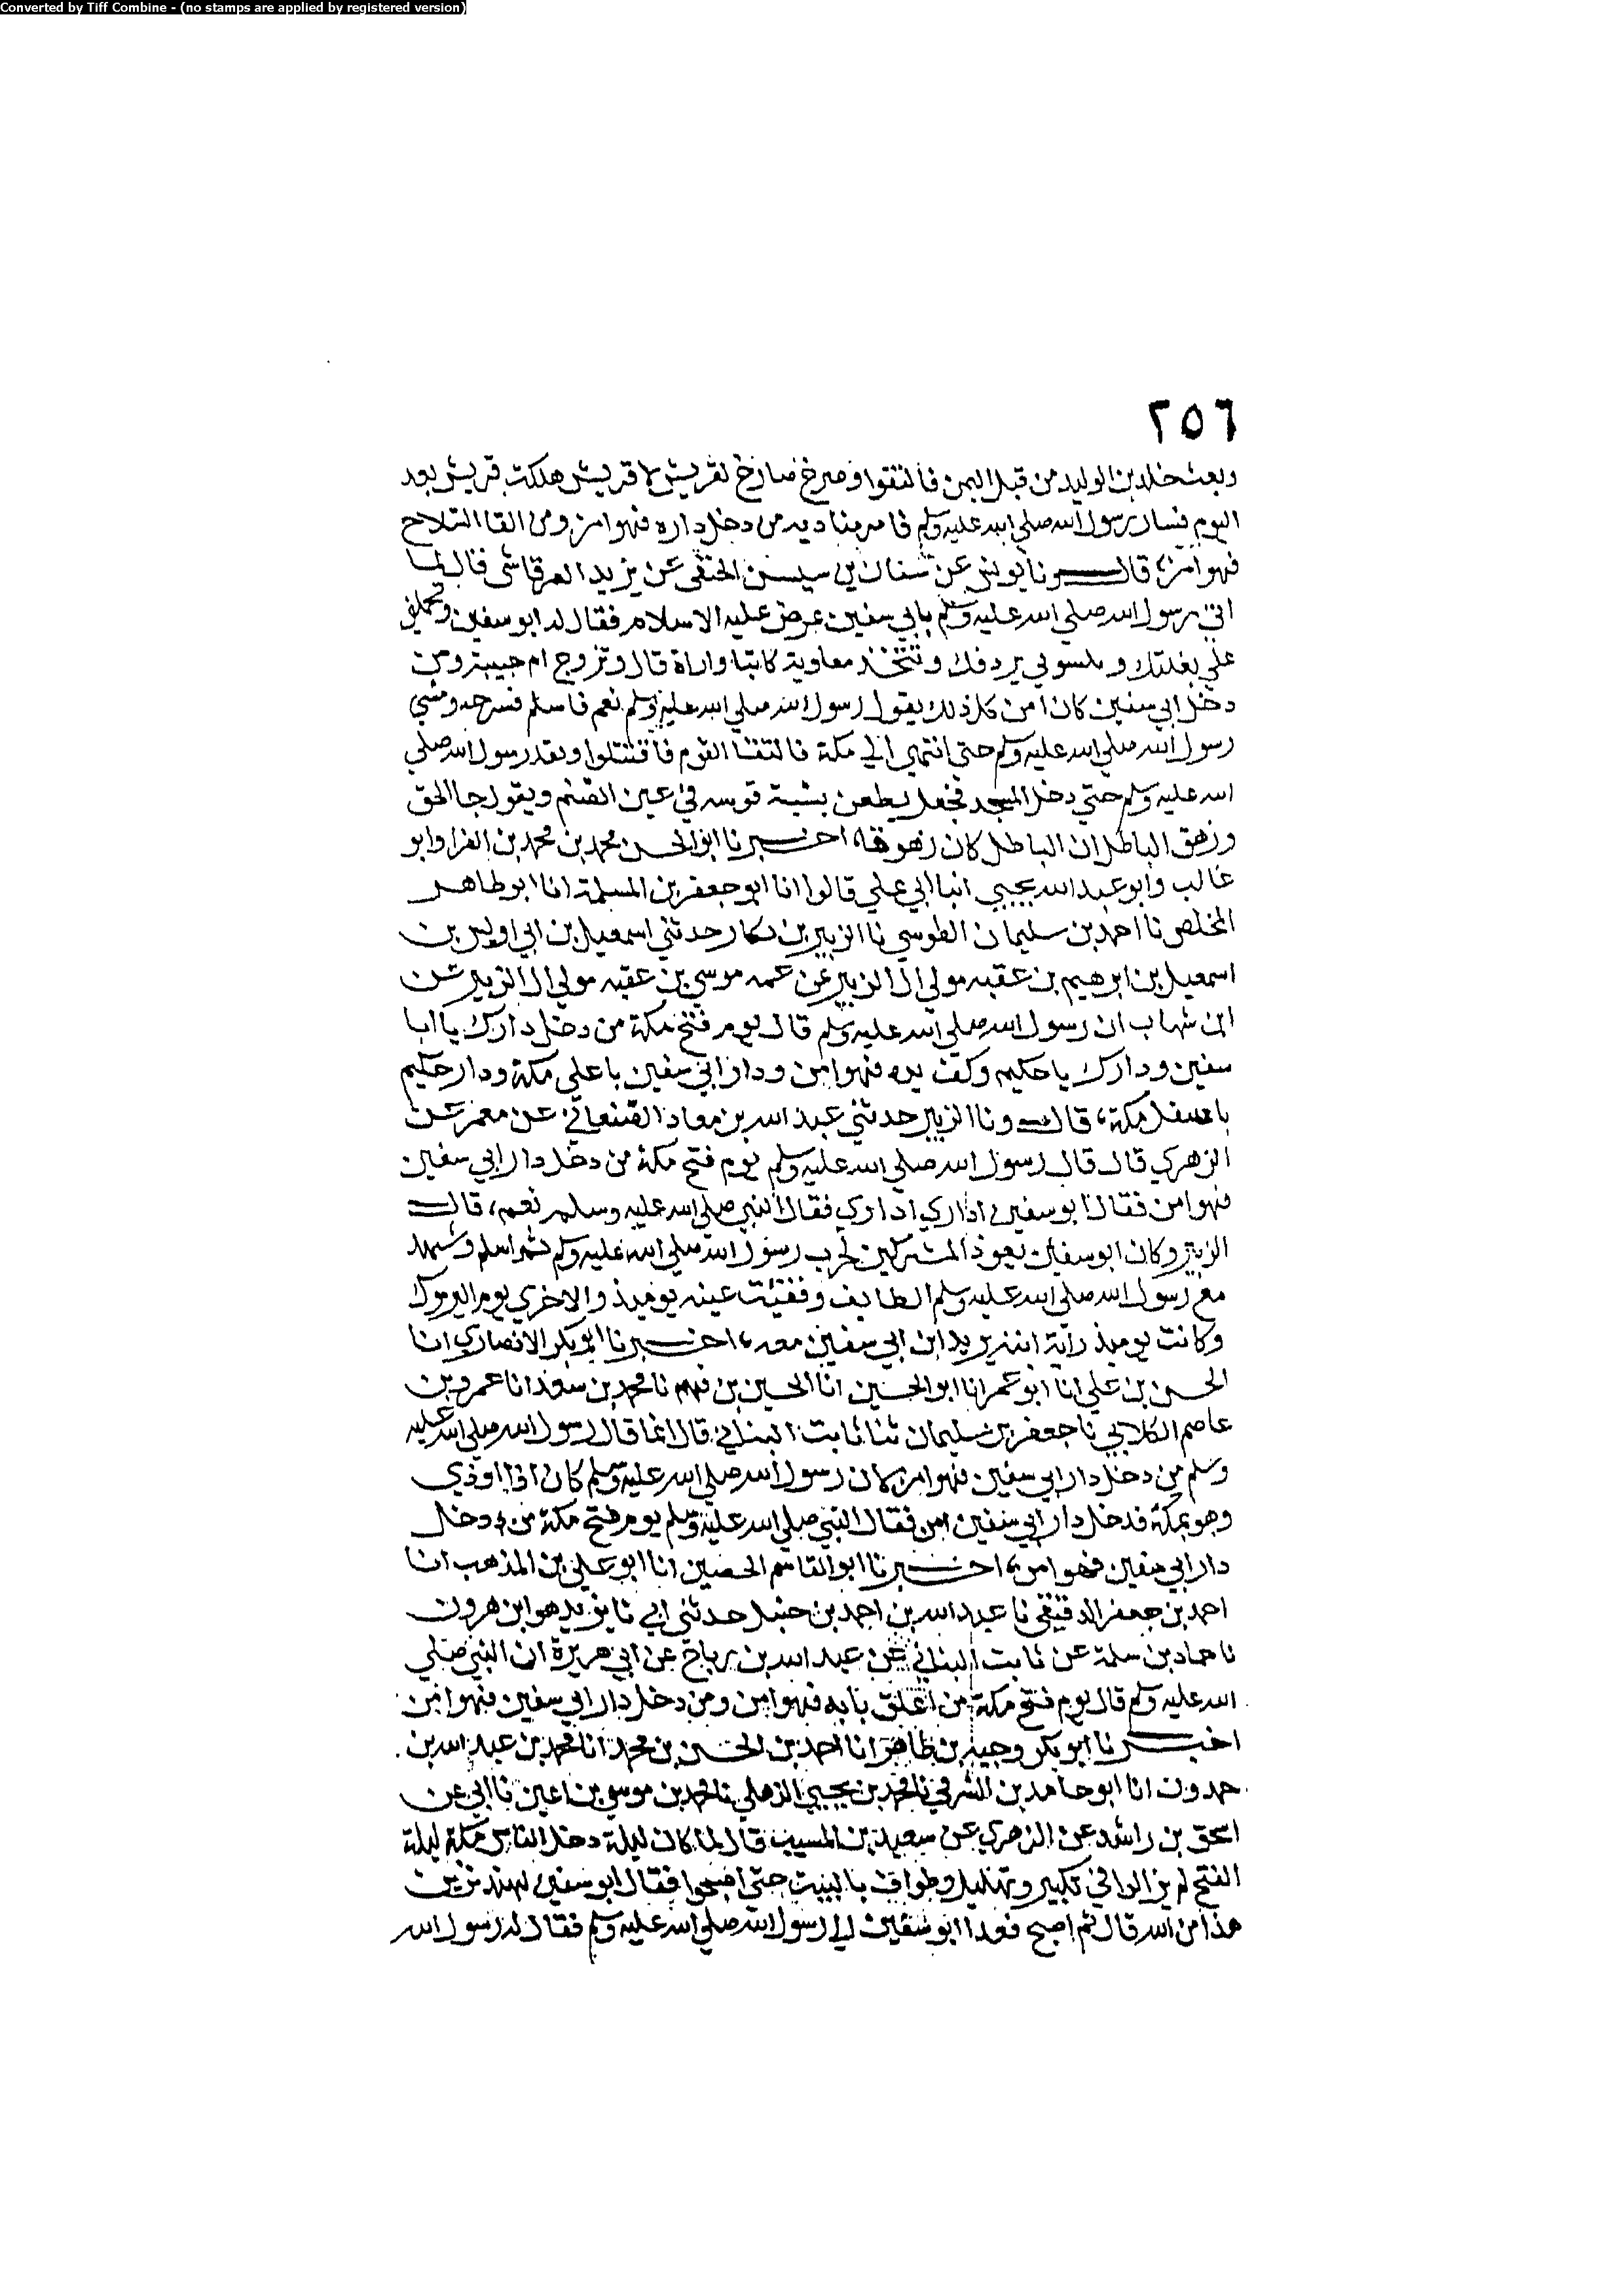 Converted by Tiff Combine - (no stamps are applied by registered version)
٢٥٦
وبعث خلد بن الوليد من قبل اليمن فالتقوا وصرخ صارخ لقريش لا قريش هلكت قريش بعد
اليوم فسار رسول الله صلي الله عليه وسلم فامر مناديه من دخل داره فهو امن ومن القا السلاح
فهو امن، قال ونا يونس عن سنان بن سيسن الحنفى عن يزيد الرقاشى قال لما
اتى رسول الله صلي الله عليه وسلم بابي سفين عرض عليه الاسلام فقال له ابو سفين وتحملني
علي بغلتك و يردفك وتتخذ معاوية كاتبا قال وتزوج ام حبيبة ومن
دخل ابي سفين كان امن كل ذلك يقول رسول الله صلي الله عليه وسلم نعم فاسلم فسرحه ومشي
رسول الله صلي الله عليه وسلم حتى انتهي الي مكة فالتقا القوم فاقتتلوا وبعد رسول الله صلي
الله عليه وسلم حتي دخل المسجد فجعل يطعن بسية قوسه في عين الصنم ويقول جا الحق
وزهق الباطل ان الباطل كان زهوقا، اخبرنا ابو الحسن محمد بن محمد بن الفرا وابو
غالب وابو عبد الله يحيي انبا ابي علي قالوا انا ابو جعفر بن المسلمة انا ابو طاهر
المخلص نا احمد بن سليمان الطوسي نا الزبير بن بكار حدثني اسمعيل بن ابي اويس بن
اسمعيل بن ابرهيم بن عقبه مولي ال الزبير عن عمه موسي بن عقبه مولي ال الزبير عن
ابن شهاب ان رسول الله صلي الله عليه وسلم قال يوم فتح مكة من دخل دارك يا ابا
سفين ودارك يا حكيم وكف يده فهو امن ودار ابي سفين باعلي مكة ودار حكيم
باسفل مكة، قال ونا الزبير حدثني عبد الله بن معاذ الصنعاني عن معمر عن
الزهري قال قال رسول الله صلي الله عليه وسلم يوم فتح مكة من دخل دار ابي سفين
فهو امن فقال ابو سفين اداري اداري فقال النبي صلي الله عليه وسلم نعم، قال
الزبير وكان ابو سفين يعود المشركين لحرب رسول الله صلي الله عليه وسلم ثم اسلم وشهد
مع رسول الله صلي الله عليه وسلم الطايف وفقئت عينه يوميذ والاخري يوم اليرموك
وكانت يوميذ راية ابنه يزيد ابن ابي سفين معه، اخبرنا ابو بكر الانصاري انا
الحسن بن علي انا ابو عمر انا ابو الحسين انا الحسين بن فهم نا محمد بن سعد انا عمرو بن
عاصم الكلابي نا جعفر بن سليمان ثنا ثابت البناني قال انما قال رسول الله صلي الله عليه
وسلم من دخل دار ابي سفين فهو امن كان رسول الله صلي الله عليه وسلم كان اذا اوذي
وهو بمكة فدخل دار ابي سفين امن فقال النبي صلي الله عليه وسلم يوم فتح مكة من دخل
دار ابي سفين فهو امن، اخبرنا ابو القاسم الحصين انا ابو علي بن المذهب انا
احمد بن جعفر الدقيقي نا عبد الله بن احمد بن حنبل حدثني ابي نا يزيد هو ابن هرون
نا حماد بن سلمة عن ثابت البناني عن عبد الله بن رباح عن ابي هريرة ان النبي صلي
الله عليه وسلم قال يوم فتح مكة من اغلق بابه فهو امن ومن دخل دار ابي سفين فهو امن
اخبرنا ابو بكر وجيه بن طاهر انا احمد بن الحسن بن محمد انا محمد بن عبد الله بن
حمدون انا ابو حامد بن الشرقي نا محمد بن يحيي الذهلي نا محمد بن موسي بن اعين نا ابي عن
اسحق بن راشد عن الزهري عن سعيد بن المسيب قال لما كان ليلة دخل الناس مكة ليلة
الفتح لم يزالوا في تكبير وتهليل وطواف بالبيت حتي اصبحوا فقال ابو سفين لهند ترين
هذا من الله قال ثم اصبح فغدا ابو سفين الي رسول الله صلي الله عليه وسلم فقال له رسول الله